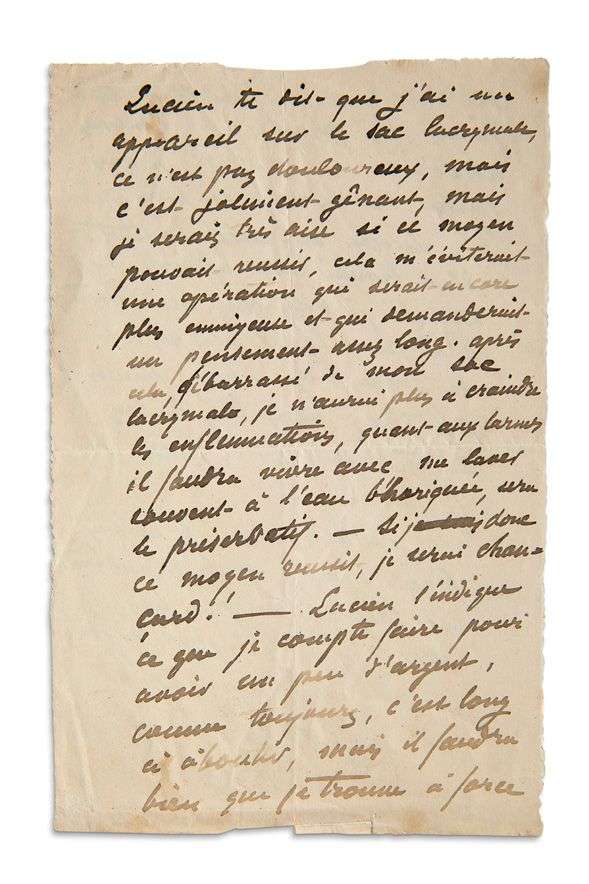 Lucien te dit que j'ai un
appareil sur le sac lacrymale,
ce n'est pas douloureux, mais
c'est joliment gênant, mais
je serais très aise si ce moyen
pouvait reussir, cela m'éviterait
une opération qui serait encore
plus ennuyeuse et qui demanderait
un pensement assez long. après
cela débarrassé de mon sac
lacrymale, je n'aurai plus à craindre
les enflemmations, quant aux larmes
il faudra vivre avec me laver
souvent à l'eau bhoriquée, sera
le préserbatif. — Si donc
ce moyen reussit, je serai chan-
card! — Lucien t'indique
ce que je compte faire pour
avoir un peu d'argent,
comme toujours, c'est long
à aboutir, mais il faudra
bien que je trouve à force